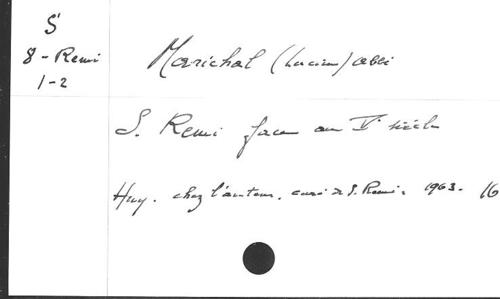 S
8 - Remi
1-2
Maréchal (Lucien) abbé
S. Remi face au V° siècle
Huy. chez l'auteur, curé de S. Remi. 1963. 16